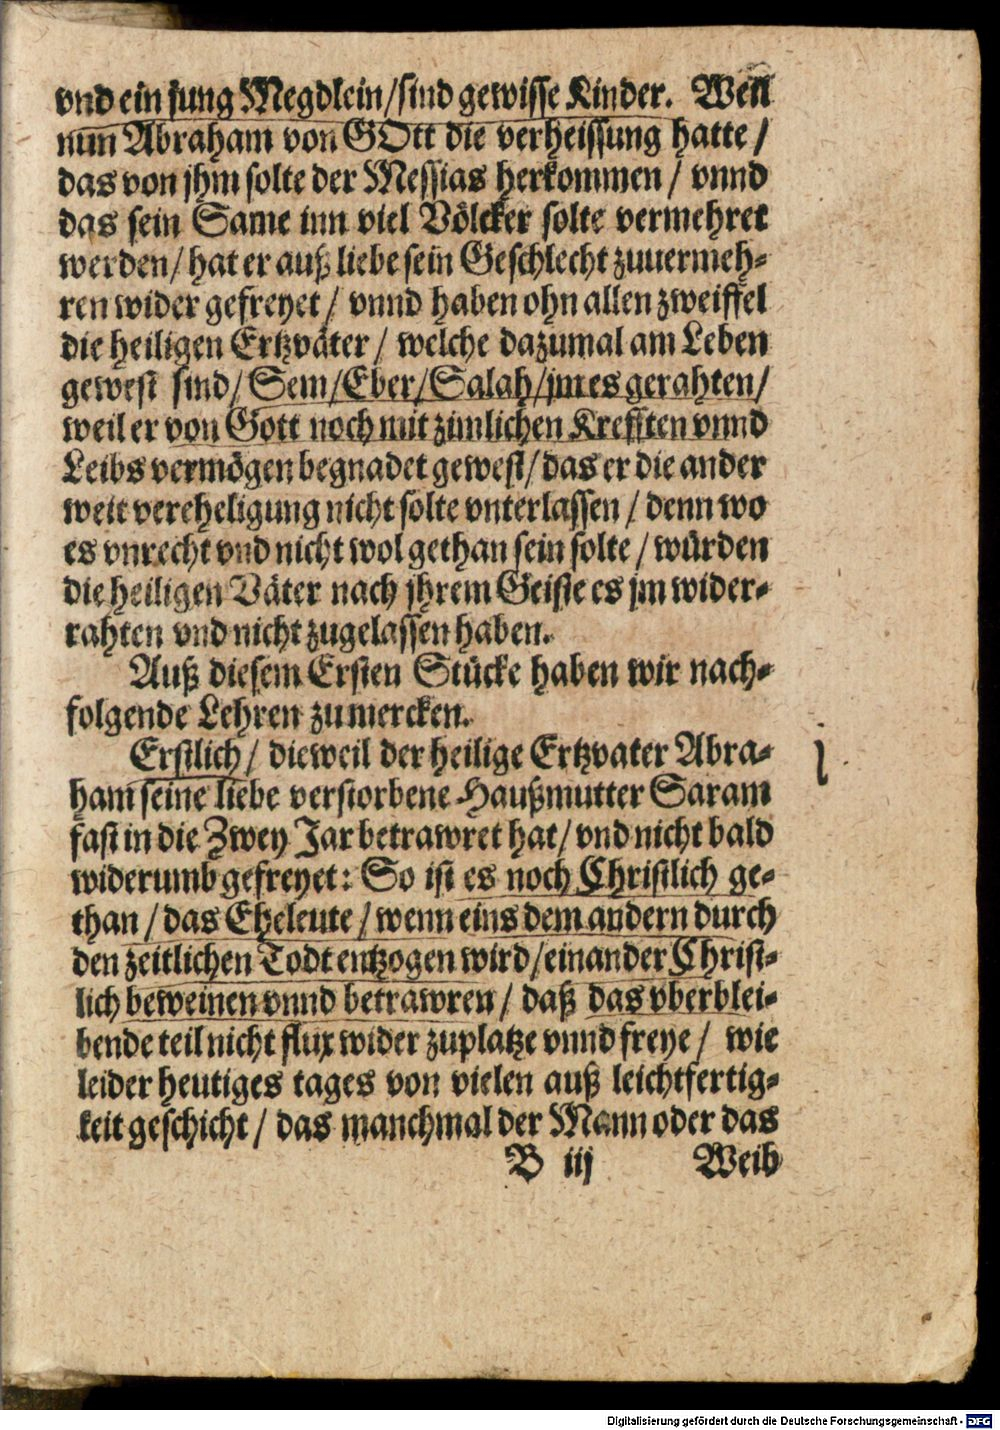 vnd ein jung Megdlein/sind gewisse Kinder. Weil
nun Abraham von GOtt die verheissung hatte/
das von jhm solte der Messias herkommen/ vnnd
das sein Same inn viel Völcker solte vermehret
werden/hat er auß liebe sein Geschlecht zuuermeh-
ren wider gefreyet/ vnnd haben ohn allen zweiffel
die heiligen Ertzväter/ welche dazumal am Leben
gewest sind/Sem/Eber/Salah/jm es gerahten/
weil er von Gott noch mit zimlichen Krefften vnnd
Leibs vermögen begnadet gewest/das er die ander
weit verehelígung nicht solte vnterlassen/denn wo
es vnrecht vnd nicht wol gethan sein solte/würden
die heiligen Väter nach jhrem Geiste es jm wider-
rahten vnd nicht zugelassen haben.
Auß diesem Ersten Stücke haben wir nach-
folgende Lehren zumercken.
Erstlich/ dieweil der heilige Ertzvater Abra-
ham seine liebe verstorbene Haußmutter Saram
fast in die Zwey Jar betrawret hat/vnd nicht bald
widerumb gefreyet: So ist es noch Christlich ge-
than/das Eheleute/wenn eins dem andern durch
den zeitlichen Todt entzogen wird/einander Christ-
lich beweinen vnnd betrawren/ daß das vberblei-
bende teil nicht flux wider zuplatze vnnd freye/ wie
leider heutiges tages von vielen auß leichtfertig-
keit geschicht/das manchmal der Mann oder das
B iij Weib
Digitalisierung gefördert durch die Deutsche Forschungsgemeinschaft - DFG